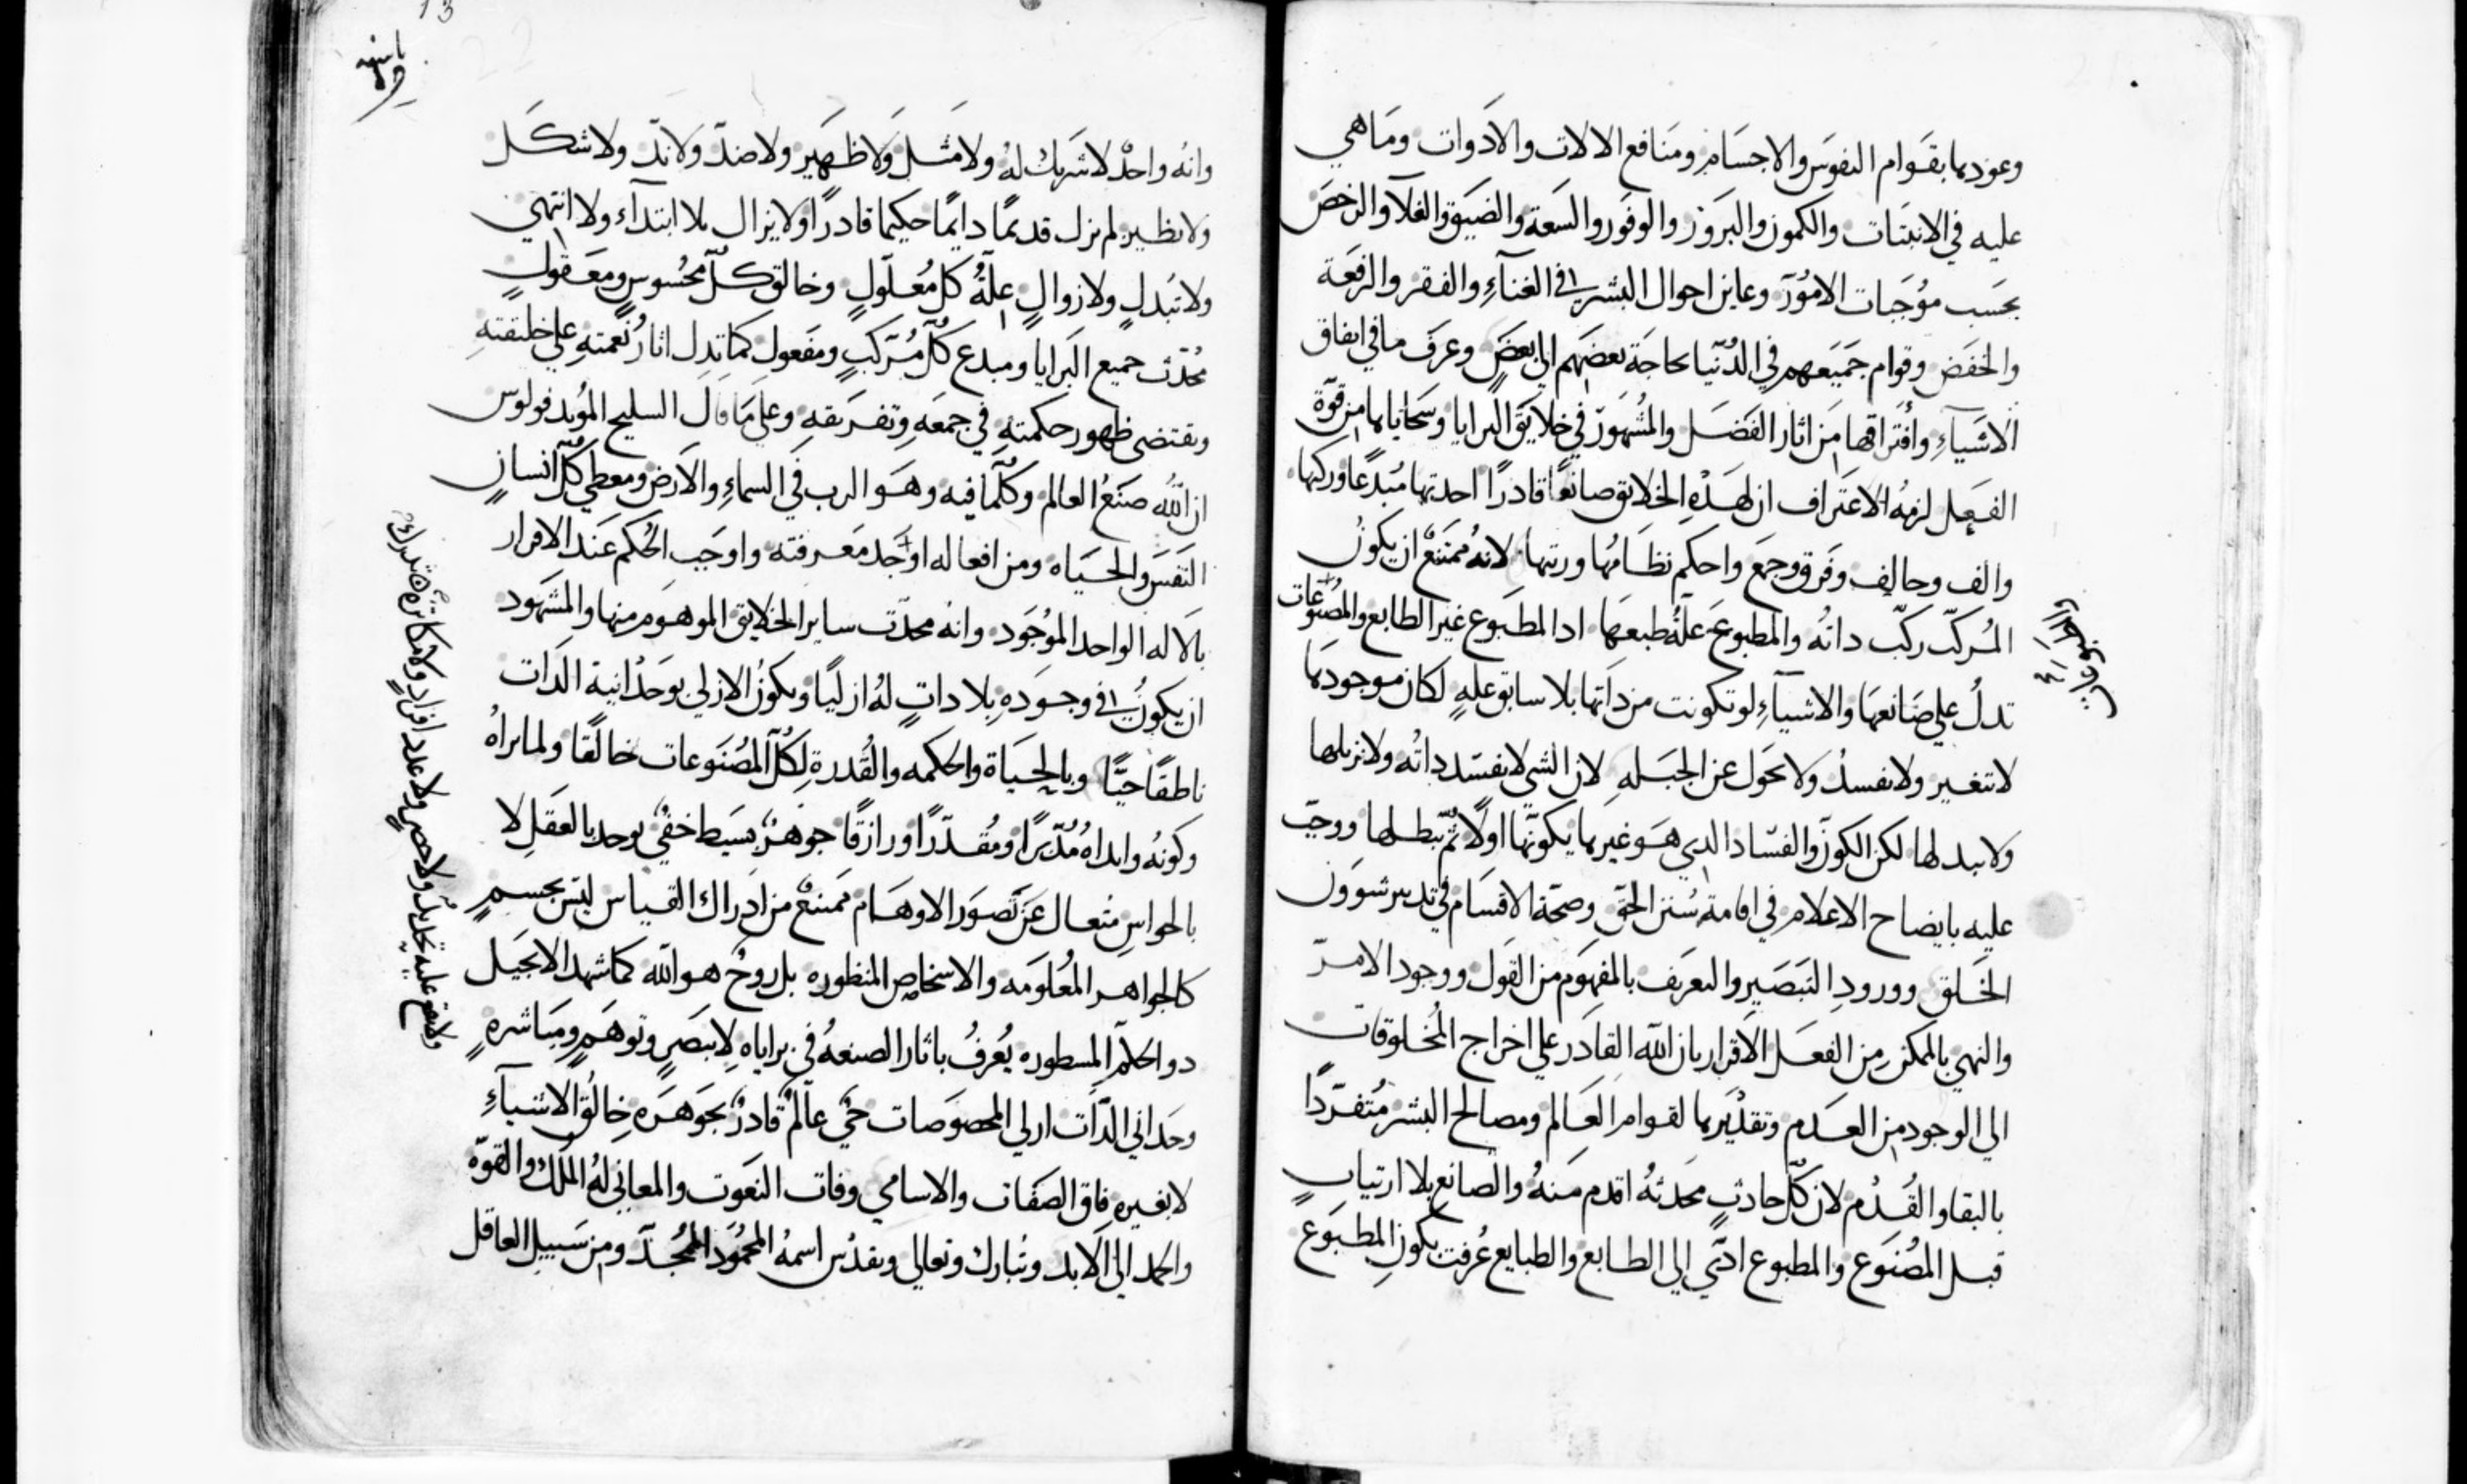 وعوذهما بقوام النفوس والاجسام ومنافع الالات والادوات وماهي
عليه في الانبتات والكمون والبروز والوفور والسعة والضيق والغلآ والرخص
بحسب موُجبات الامُور وعاين احوال البشر في الغنآءِ والفقر والرفعة
والخفض وقوام جميعهم في الدُنيا بحاجة بعضهم الى بعضٍ وعرف ما في اتفاق
الاشيآءِ وافتراقها من اثار الفضل والمشهور في خلايق البرايا وسحاياها من قوّة
الفعل لزمهُ الاعتراف ان لهذهِ الخلايق صانعًا قادرًا احدثها مُبدعًا وركبها
والف وحالف وفرق وجمع واحكم نظامُها ورتبها لانهُ ممتنعٌ ان يكونُ
المُركبّ ركبّ داتُه والمطبوع علةُ طبعها ادا المطبوع غير الطابع والمصنوعات
تدلُ علي صانعها والاشيآءِ لو تكونت من داتها بلا سابق علهٍ لكان موجودها
لا تتغير ولا تفسدُ ولا تحول عن الجبلهِ لان الشي لا يفسد داتُه ولا يزيلها
ولا يبدلها لكن الكون والفساد الدي هو غيرها يكونّها اولًا ثمّ يبطلها ووجبّ
عليه بايضاح الاعلام في اقامة سُنن الحقّ وصحّة الاقسام في تدبير شوون
الخلق وورودِ التبصيرِ والتعريف بالمفهوم من القول ووجود الامرّ
والنهي بالممكن من الفعل الاقرار بان الله القادر علي اخراج المخلوقات
الي الوجود من العدم وتقديرها لقوام العالم ومصالح البشر مُتفرّدًا
بالبقا والقُدم لان كلّ حادثٍ محدثهُ اقدم منهُ والصانع بلا ارتيابٍ
قبل المصُنوع والمطبوع ادّي الى الطابع والطبايع عُرفت بكونِ المطبوع
وانُه واحدٌ لا شريك لهُ ولا مثل ولا ظهير ولا ضدّ ولا ندّ ولا شكل
ولا نظير لم يزل قديمًا دايمًا حكيما قادرًا ولا يزال بلا ابتدآء ولا انتهي
ولا تبدلٍ ولا زوالٍ علةُ كل مُعلولٍ وخالق كلّ محسُوسٍ ومعقولٍ
مُحدّث جميع البرايا ومبدع كلّ مُركبٍ ومفعول كما تدل اثارُ نعمتهِ علي خليقتهِ
ويقتضى ظهور حكمتهِ في جمعهِ وتفريقهِ وعلى ما قال السليح المُويد فولوس
ان اللّٰه صنع العالم وكلّما فيه وهو الرب في السماءِ والارض ومعطي كلّ انسانٍ
النفس والحياه ومن افعاله اوجد معرفته واوجب الحُكم عند الاقرار
بالاله الواحد الموُجود وانه محدّت ساير الخلايق الموهوم منها والمشهود
ان يكونُ في وجودهِ بلا داتٍ لهُ ازليًا ويكونُ الازلي بوحدانية الدات
ناطقًا حيًّا وبالحياة والحكمه والقُدرة لكلّ المصُنوعات خالقًا ولما براهُ
وكونُه وابداهُ مُدّبرًا ومُقدّرًا ورازقًا جوهرٌ بسيط خفيٌ يوحد بالعقلِ لا
بالحواسِ متعال عن تصور الاوهام ممتنعٌ من ادراك القياس ليس بجسمٍ
كالجواهر المعُلومه والاشخاص المنظوره بل روحٌ هو الله كما شهد الانجيل
دو الحكم المسطوره يُعرفُ باثار الصنعهُ في براياه لا ببصرٍ وتوهمٍ ومباشرهٍ
وحداني الدّات ازلي المخصوصات حيٌ عالمٌ قادرٌ بجوهره خالقُ الاشيآءِ
لا بغيرهِ فاق الصفات والاسامي وفات النعوت والمعاني لهُ الملك والقوّة
والحمد الي الابد وتُبارك وتعالي وتقدس اسمهُ المحمُود المُمجدّ ومن سبيل العاقل
ولا يقع عليه تحديدٌ ولا حصرٍ ولا عدد افرادٍ ولا مكاثرةٍ
13